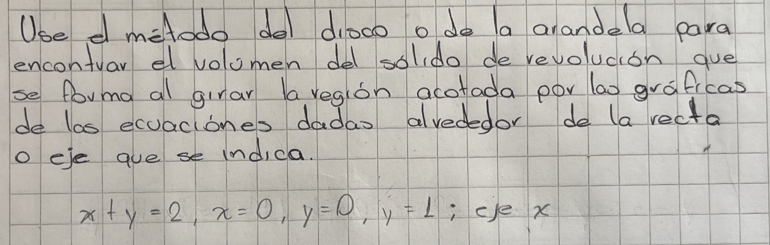 Use el método del disco o de la arandela para
encontrar el volúmen del sólido de revolución que
se forma al girar la región acotada por las gráficas
de las ecuaciónes dadas alrededor de la recta
o eje que se indica.
x + y = 2, x = 0, y = 0, y = 1; eje x